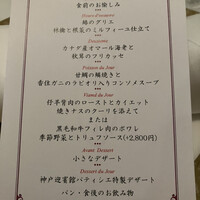 食前のお愉しみ
Hors-d'oeuvre
鴨のグリエ
砂糖と根菜のミルフィーユ仕立て
Deuxième
カナダ産オマール海老と
秋茄のフリカッセ
Poisson du Jour
甘鯛の鱗焼きと
香住ガニのラビオリ入りコンソメスープ
Viand du Jour
仔羊背肉のローストとカイエット
焼きナスのタルトを添えて
または
黒毛和牛フィレ肉のポワレ
季節野菜とトリュフソース(+2,800円)
Avant Dessert
小さなデザート
Dessert du Jour
神戸迎賓館パティシエ特製デザート
パン・食後のお飲み物